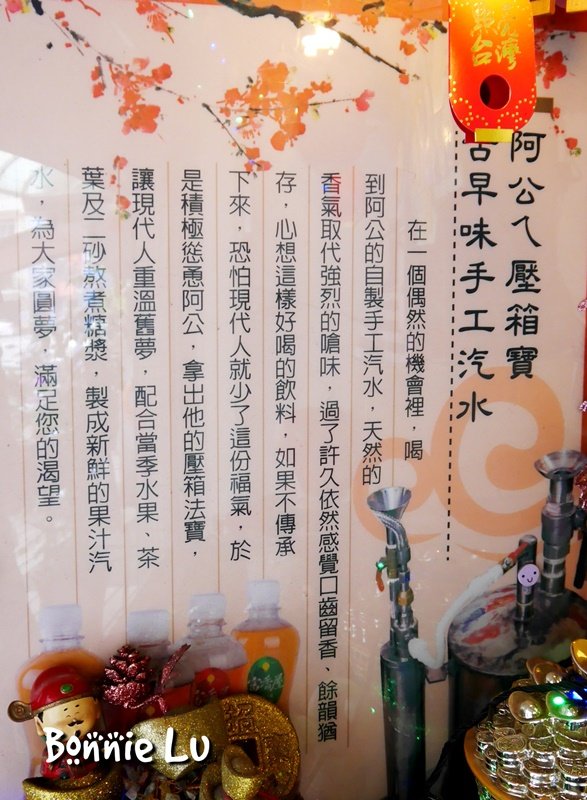 阿公ㄟ壓箱寶
古早味手工汽水
在一個偶然的機會裡，喝
到阿公的自製手工汽水，天然的
香氣取代強烈的嗆味，過了許久依然感覺口齒留香、餘韻猶
存，心想這樣好喝的飲料，如果不傳承
下來，恐怕現代人就少了這份福氣，於
是積極慫恿阿公，拿出他的壓箱法寶，
讓現代人重溫舊夢，配合當季水果、茶
葉及二砂熬煮糖漿，製成新鮮的果汁汽
水，為大家圓夢，滿足您的渴望。
台灣
Bonnie Lu